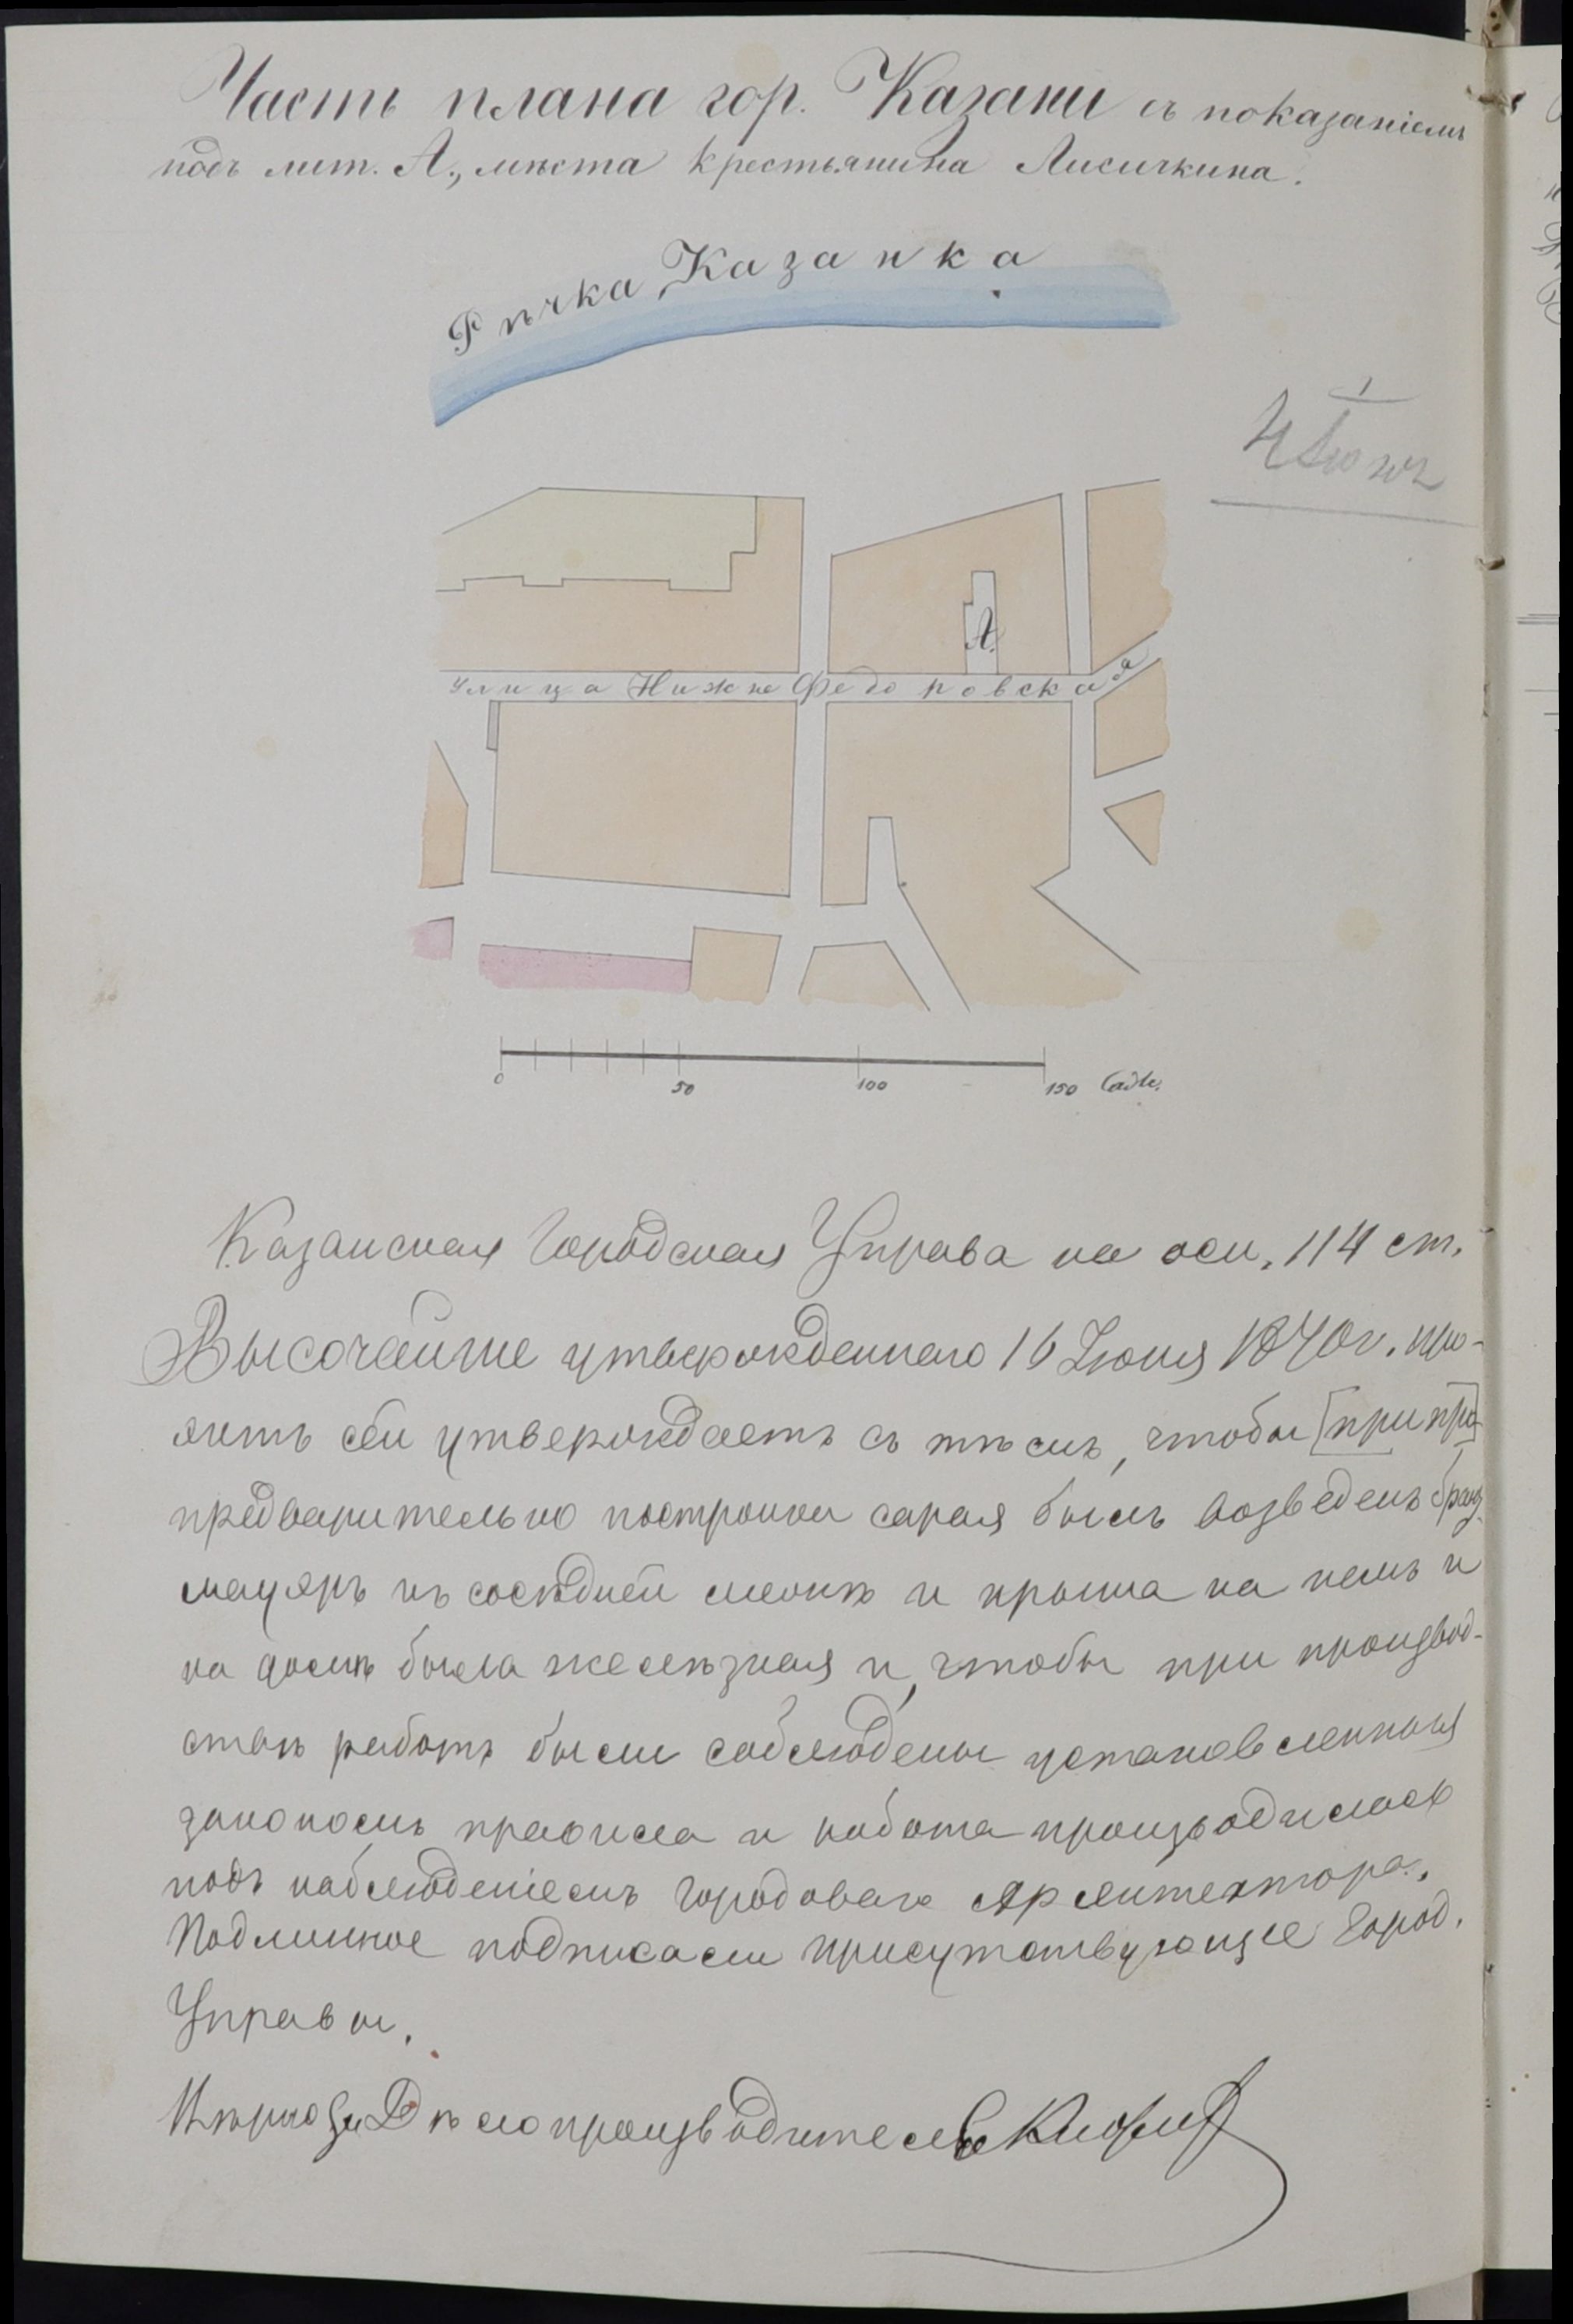 Часть плана гор. Казани съ показаніемъ
подъ лит. А., мѣста крестьянина Лисичкина.
Рѣчка Казанка
А.
улица Нижне Федоровская
0 50 100 150 Саж.
Казанская Городская Управа на осн. 114 ст.
Высочайше утвержденнаго 16 Іюня 1870 г. про-
эктъ сей утверждаетъ съ тѣмъ, чтобы [при про]
предварительно постройки сарая былъ возведенъ бранд
мауэръ къ сосѣдней межѣ и крыша на немъ и
на домѣ была желѣзная и, чтобы при производ-
ствѣ работъ были соблюдены установленныя
закономъ правила и работа производилась
подъ наблюденіемъ Городоваго Архитектора.
Подлинное подписали присутствующіе Город.
Управы.
Вѣрно За Дѣлопроизводителя